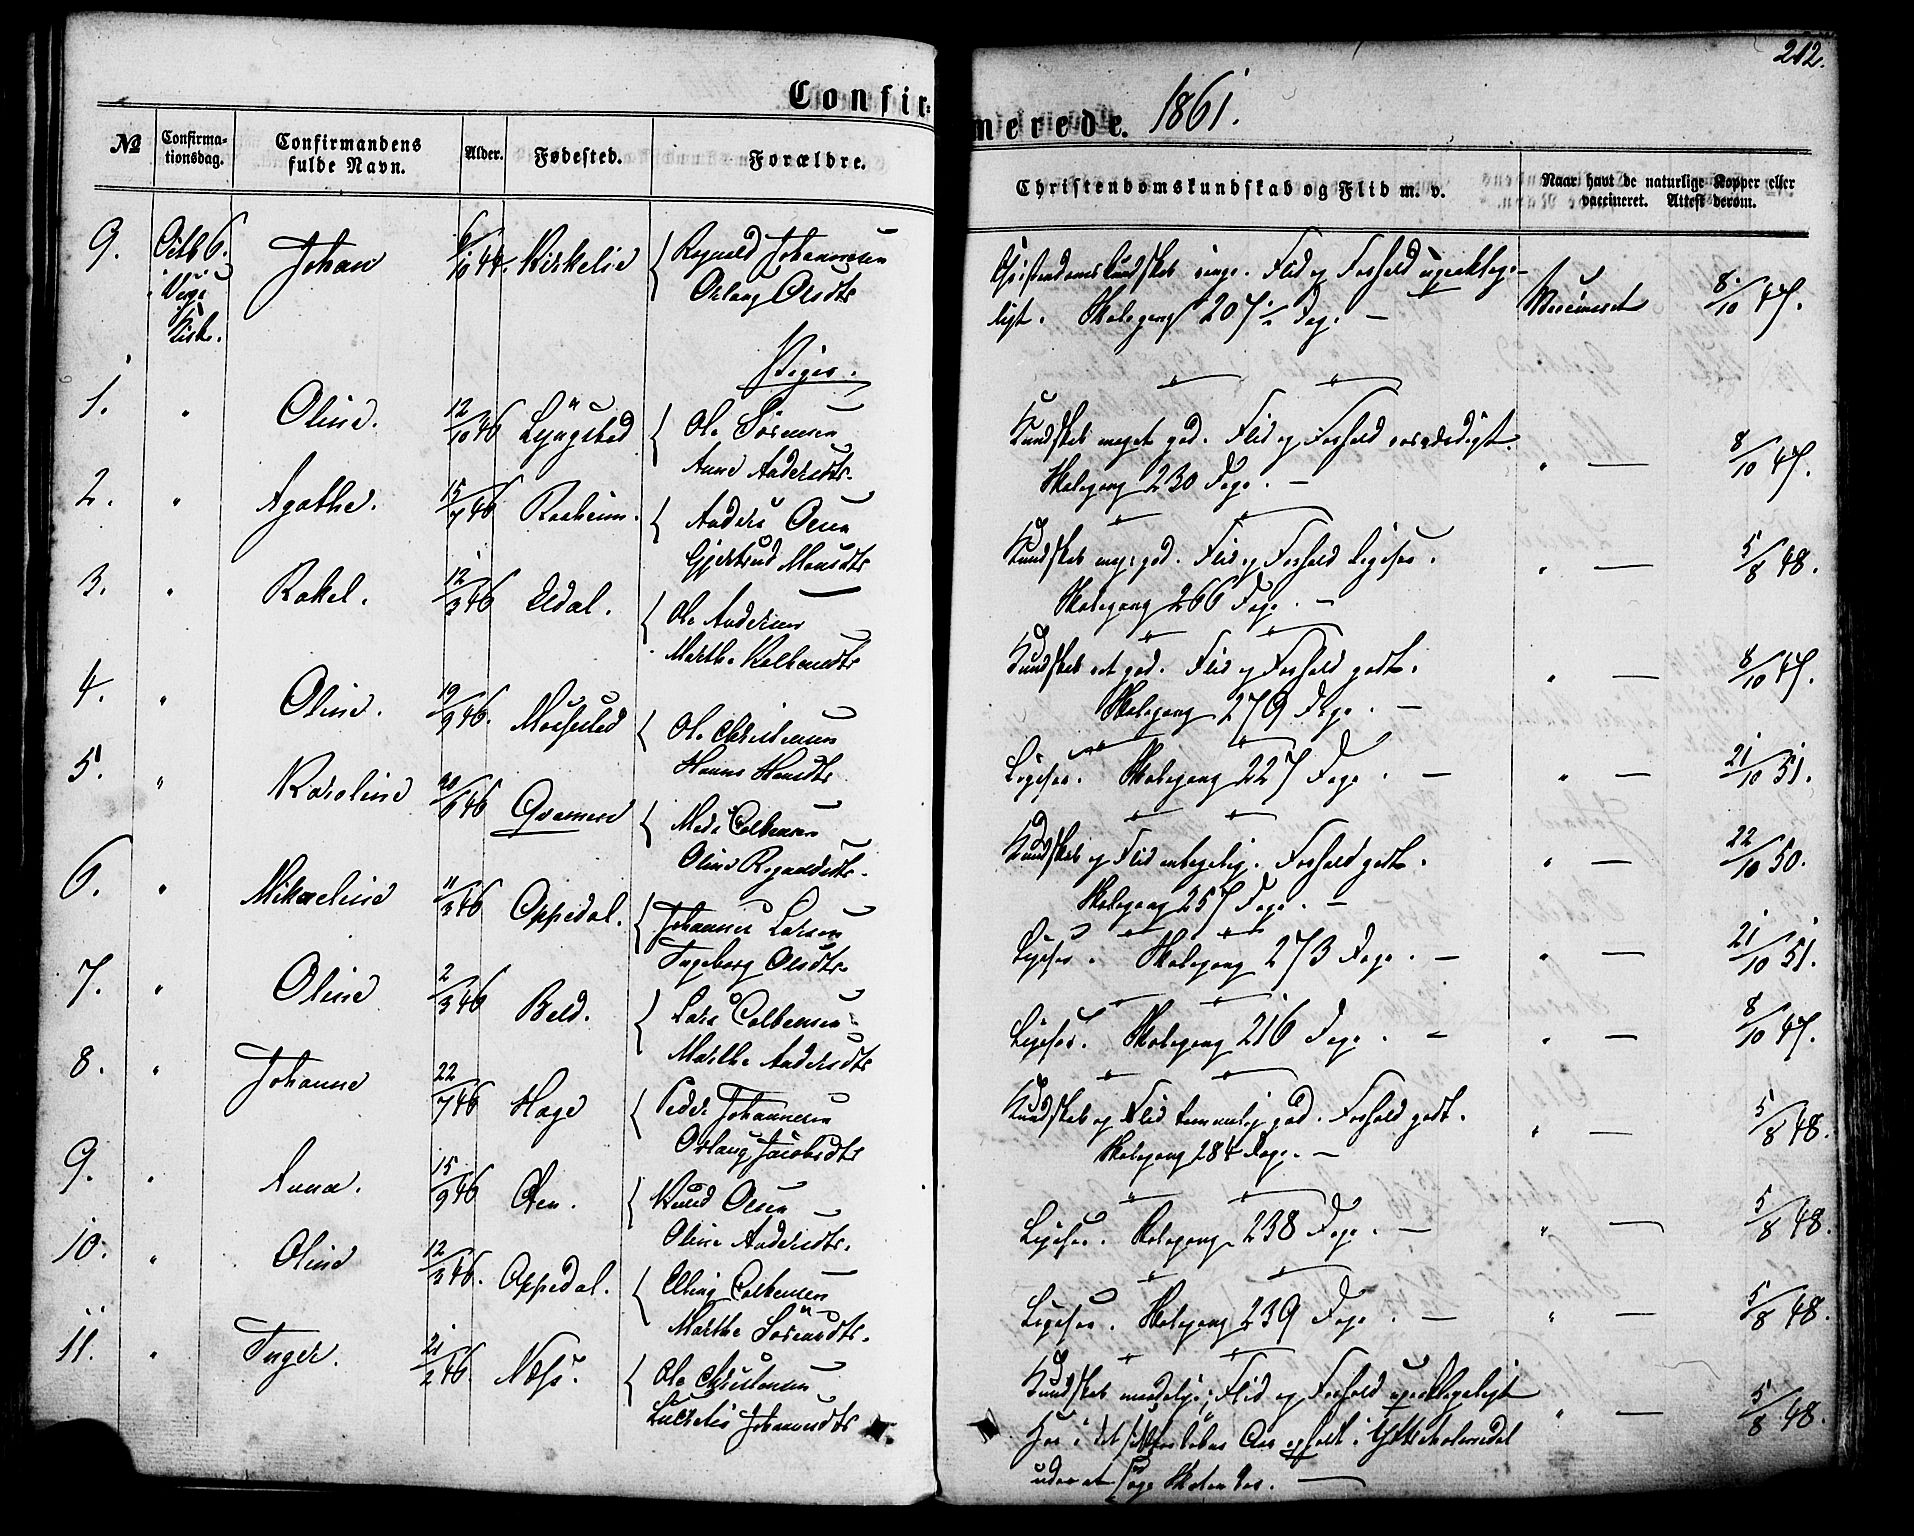 212.
Confirmerede. 1861.
№ Confirmationsdag. Confirmandens fulde Navn. Alder. Fødested. Forældre. Christendomskundskab og Flid m. v. Naar havt de naturlige Kopper eller vaccineret. Attest derom.
9. Octb 6. Johan 6/10 44. Kirkelie Rognald Johannesen
Olsdtr
Kirk.
Christendomskundskab ringe. Flid og Forhold upaaklage-
ligt. Skolegang 207 Dage. — Vaccineret 8/10 47.
Piger.
1. " Oline. 12/10 46 Ljøngsted Ole Sørensen
Anne Andersdtr.
Kundskab meget god. Flid og Forhold
Skolegang 230 Dage. — " — 8/10 47.
2. " Agathe. 15/7 46 Risheim. Anders Olsen
Gjertrud Monsdtr
Kundskab meg. god. Flid og Forhold Ligesaa.
Skolegang 266 Dage. — " — 5/8 48.
3. " Rakel. 12/3 46 Eldal. Ole Andersen
Marthe Kolbensdtr
Kundskab ret god. Flid og Forhold godt.
Skolegang 279 Dage. — " — 8/10 47.
4. " Oline. 19/9 46. Ole Christensen
Hanne Hansdtr
Ligesaa. Skolegang 227 Dage. — " — 21/10 51.
5. " Karoline 20/6 46 Qvamme Mads Colbensen
Oline Rognaldsdtr.
Kundskab og Flid antagelig. Forhold godt.
Skolegang 257 Dage. — " — 22/10 50.
6. " Mikaeline 11/3 46 Oppedal. Johannes Larsen
Ingeborg Olsdtr.
Ligesaa. Skolegang 273 Dage. — " — 21/10 51.
7. " Oline 2/3 46 Beld. Lars Colbensen
Marthe Andersdtr
Ligesaa. Skolegang 216 Dage. — " — 8/10 47.
8. " Johanne 22/7 46 Hage Peder Johannesen
Jacobsdtr
Kundskab og Flid temmelig god. Forhold godt.
Skolegang 284 Dage. — " — 5/8 48.
9. " Anna. 15/9 46 Øen. Knud Olsen
Oline Andersdtr.
Ligesaa. Skolegang 238 Dage. — " — 5/8 48.
10. " Oline 12/3 46. Oppedal. Elling Colbensen
Marthe Sørensdtr.
Ligesaa. Skolegang 239 Dage. — " — 5/8 48.
11. " Inger. 21/2 46. Næss. Ole Christensen
Lucretis Johannsdtr
Kundskab maadelig; Flid og Forhold upaaklageligt
Har i det sidste Aar i
uden at søge Skolen der. — " — 5/8 48.